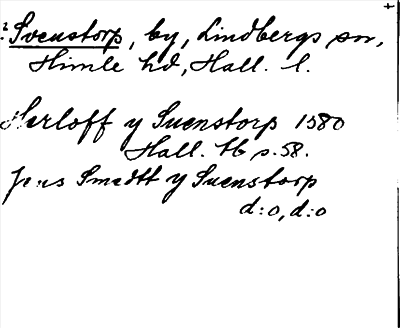 ? Svenstorp, by, Lindbergs sn,
Himle hd, Hall. l.
Herloff y Suenstorp 1580
Hall. tb s. 58.
Jens Smedtt y Suenstorp
d:o, d:o